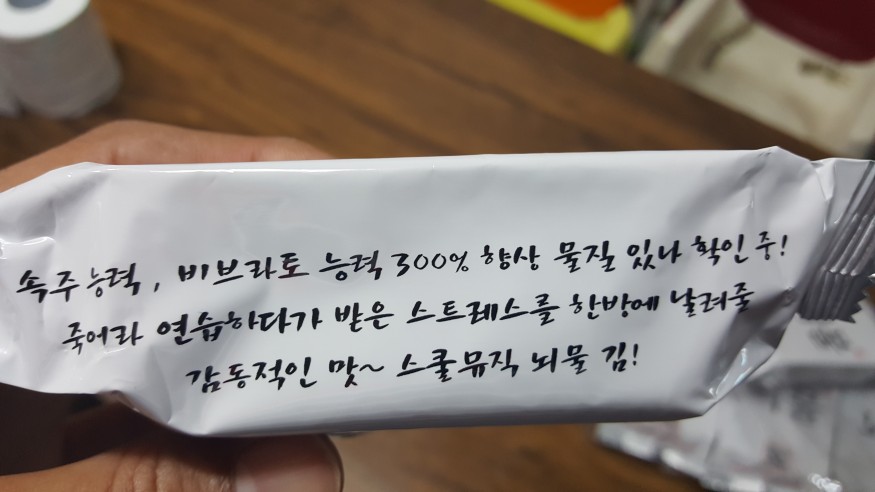 속주능력, 비브라토 능력 300% 향상 물질 있나 확인 중!
죽어라 연습하다가 받은 스트레스를 한방에 날려줄
감동적인 맛~ 스쿨뮤직 뇌물 김!